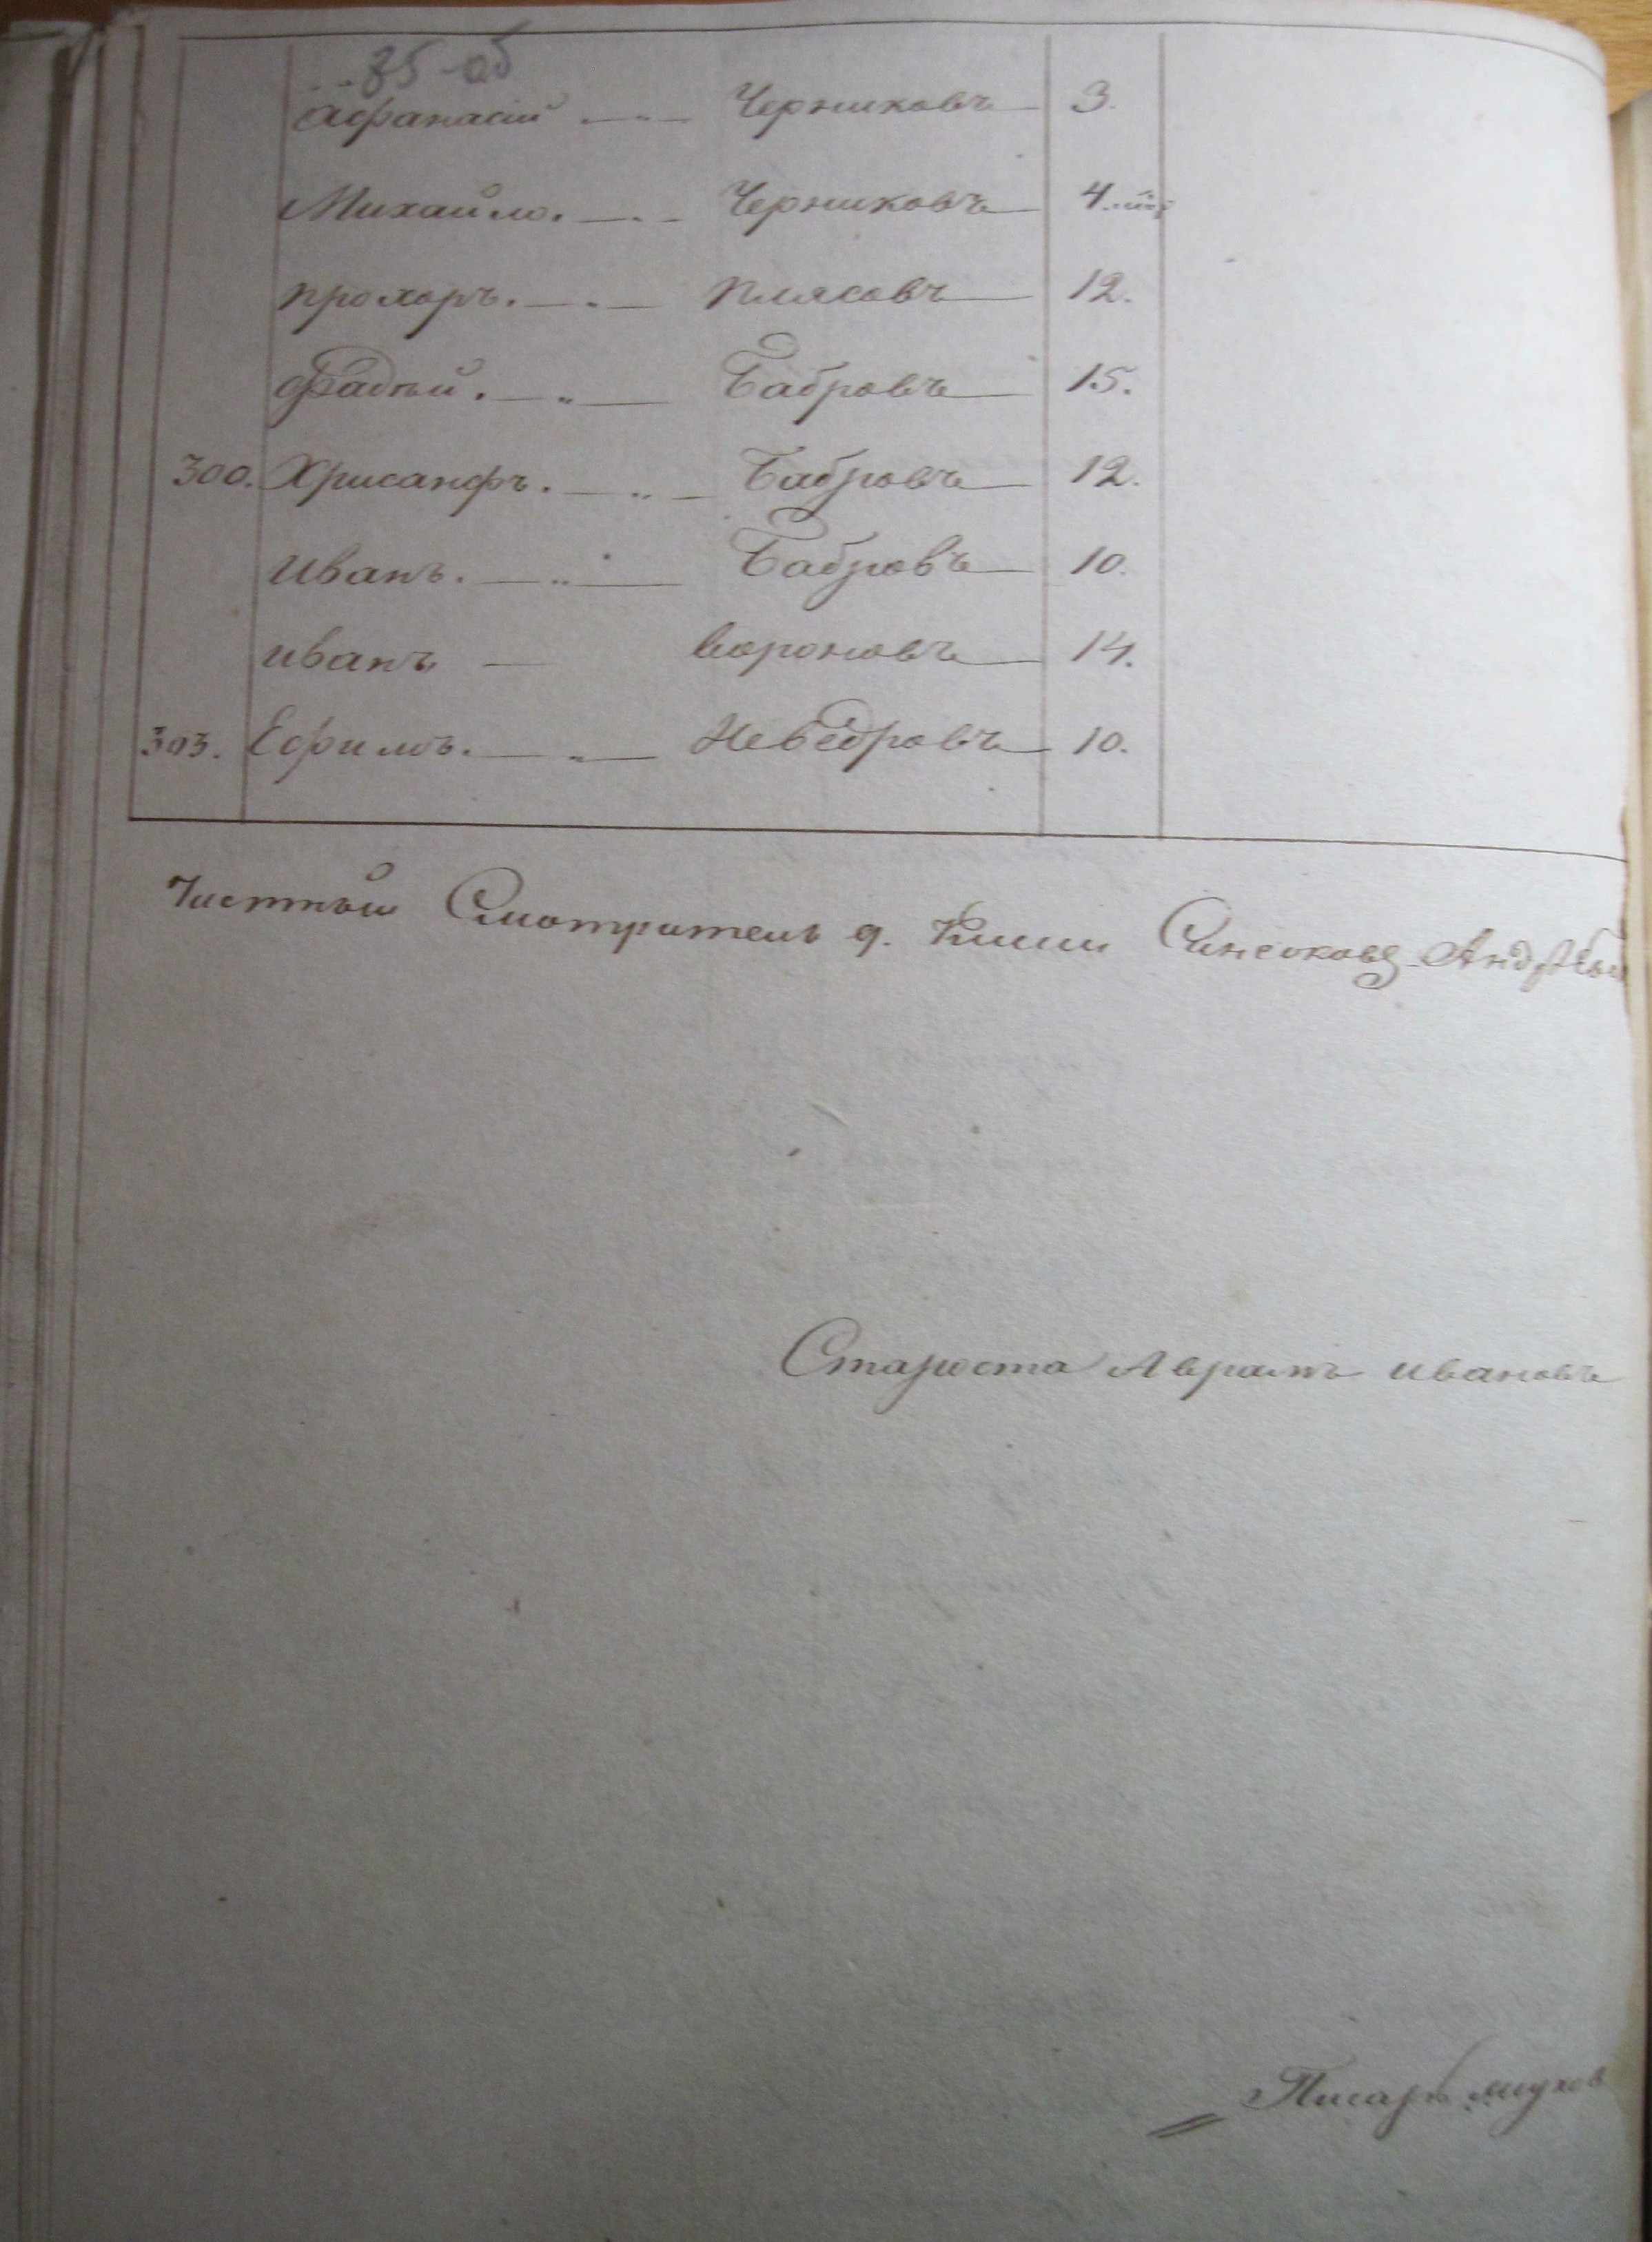 35-об
Афанасій Черниковъ 3.
Михайло. Черниковъ 4
прохоръ. Плясовъ 12.
Фадѣй. Бабровъ 15.
300. Хрисанфъ. Бабровъ 12.
иванъ. Бабровъ 10.
иванъ вороновъ 14.
303. Ефимъ. Неведровъ 10.
Смотритель д.
Староста Аврамъ ивановъ
Писарь